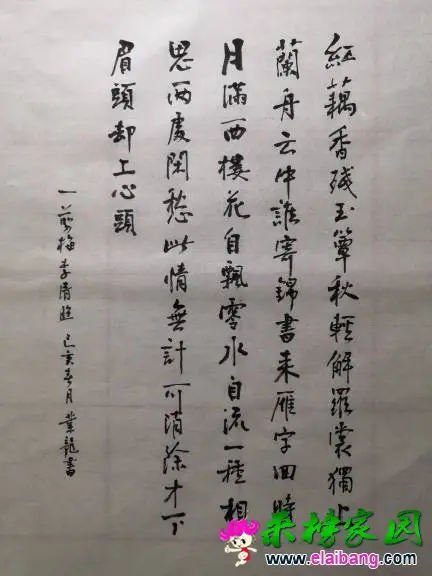 紅藕香殘玉簟秋輕解羅裳獨上
蘭舟云中誰寄錦書来雁字回時
月滿西樓花自飄零水自流一種相
思兩處閑愁此情無計可消除才下
眉頭却上心頭
一剪梅李清照己亥春月業龍書
来榜家园
www.elaibang.com